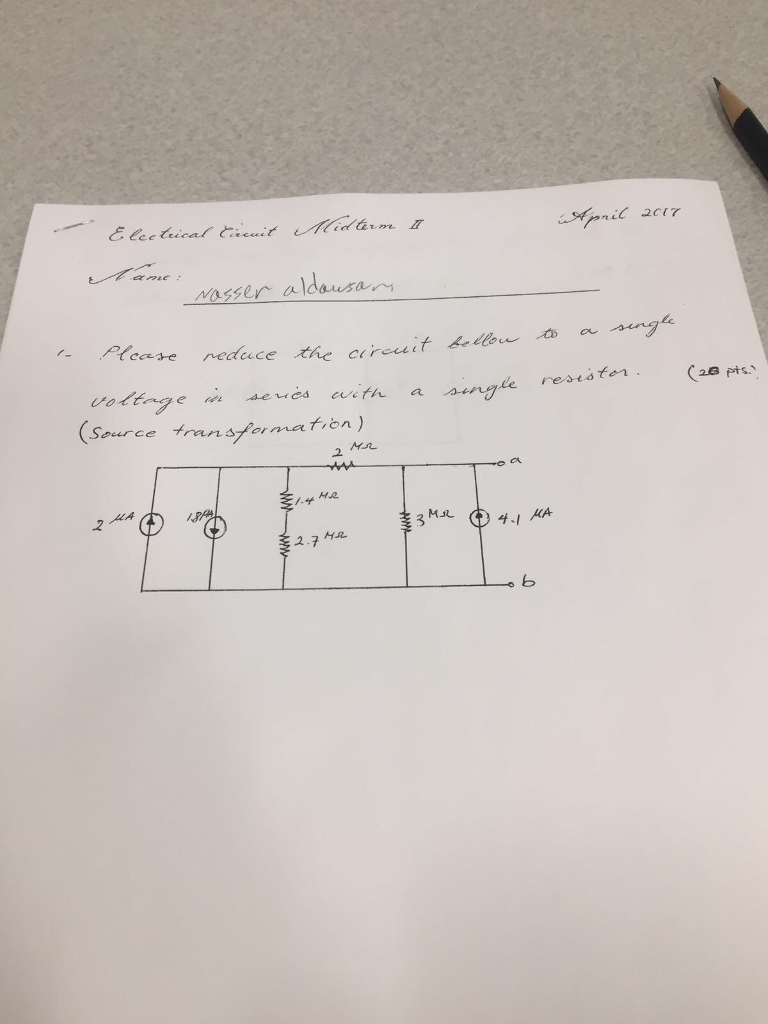 Electrical Circuit Midterm II
April 2017
Name: Nasser aldousari
1- Please reduce the circuit bellow to a single
voltage in series with a single resistor. (20 pts.)
(Source transformation)
2 MΩ
a
2 μA
1.4 MΩ
3 MΩ
4.1 μA
2.7 MΩ
b